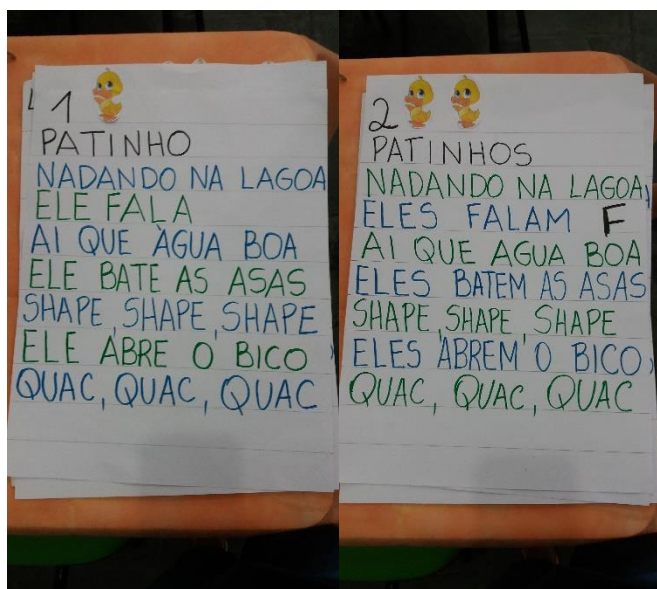 1
PATINHO
NADANDO NA LAGOA
ELE FALA
AI QUE ÀGUA BOA
ELE BATE AS ASAS
SHAPE, SHAPE, SHAPE
ELE ABRE O BICO
QUAC, QUAC, QUAC
2
PATINHOS
NADANDO NA LAGOA,
ELES FALAM F
AI QUE AGUA BOA
ELES BATEM AS ASAS
SHAPE, SHAPE, SHAPE
ELES ABREM O BICO,
QUAC, QUAC, QUAC